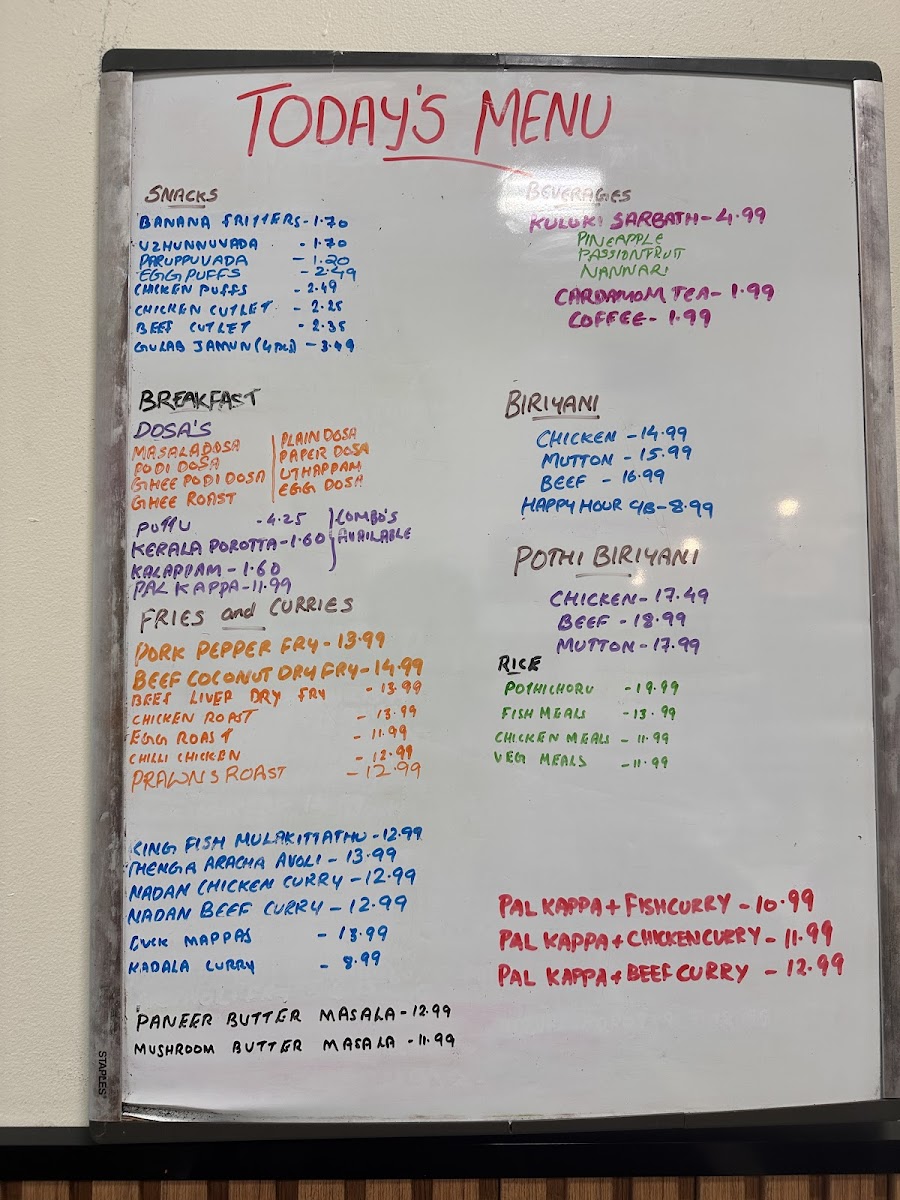 TODAY'S MENU
SNACKS
BANANA FRITTERS - 1.70
UZHUNNUVADA - 1.70
PARUPPUVADA - 1.20
EGG PUFFS - 2.49
CHICKEN PUFFS - 2.49
CHICKEN CUTLET - 2.25
BEEF CUTLET - 2.35
GULAB JAMUN (4 pcs) - 3.49
BREAKFAST
DOSA'S
MASALA DOSA
PODI DOSA
GHEE PODI DOSA
GHEE ROAST
PLAIN DOSA
PAPER DOSA
UTHAPPAM
EGG DOSA
PUTTU - 4.25
KERALA POROTTA - 1.60
KALAPPAM - 1.60
COMBO'S
AVAILABLE
PAL KAPPA - 11.99
FRIES and CURRIES
PORK PEPPER FRY - 13.99
BEEF COCONUT DRY FRY - 14.99
BEEF LIVER DRY FRY - 13.99
CHICKEN ROAST - 13.99
EGG ROAST - 11.99
CHILLI CHICKEN - 12.99
PRAWNS ROAST - 12.99
KING FISH MULAKITTATHU - 12.99
THENGA ARACHA AVOLI - 13.99
NADAN CHICKEN CURRY - 12.99
NADAN BEEF CURRY - 12.99
DUCK MAPPAS - 13.99
KADALA CURRY - 8.99
PANEER BUTTER MASALA - 12.99
MUSHROOM BUTTER MASALA - 11.99
BEVERAGES
KULUKI SARBATH - 4.99
PINEAPPLE
PASSIONFRUIT
NANNARI
CARDAMOM TEA - 1.99
COFFEE - 1.99
BIRIYANI
CHICKEN - 14.99
MUTTON - 15.99
BEEF - 16.99
HAPPY HOUR CB - 8.99
POTHI BIRIYANI
CHICKEN - 17.49
BEEF - 18.99
MUTTON - 17.99
RICE
POTHICHORU - 19.99
FISH MEALS - 13.99
CHICKEN MEALS - 11.99
VEG MEALS - 11.99
PAL KAPPA + FISHCURRY - 10.99
PAL KAPPA + CHICKENCURRY - 11.99
PAL KAPPA + BEEF CURRY - 12.99
STAPLES